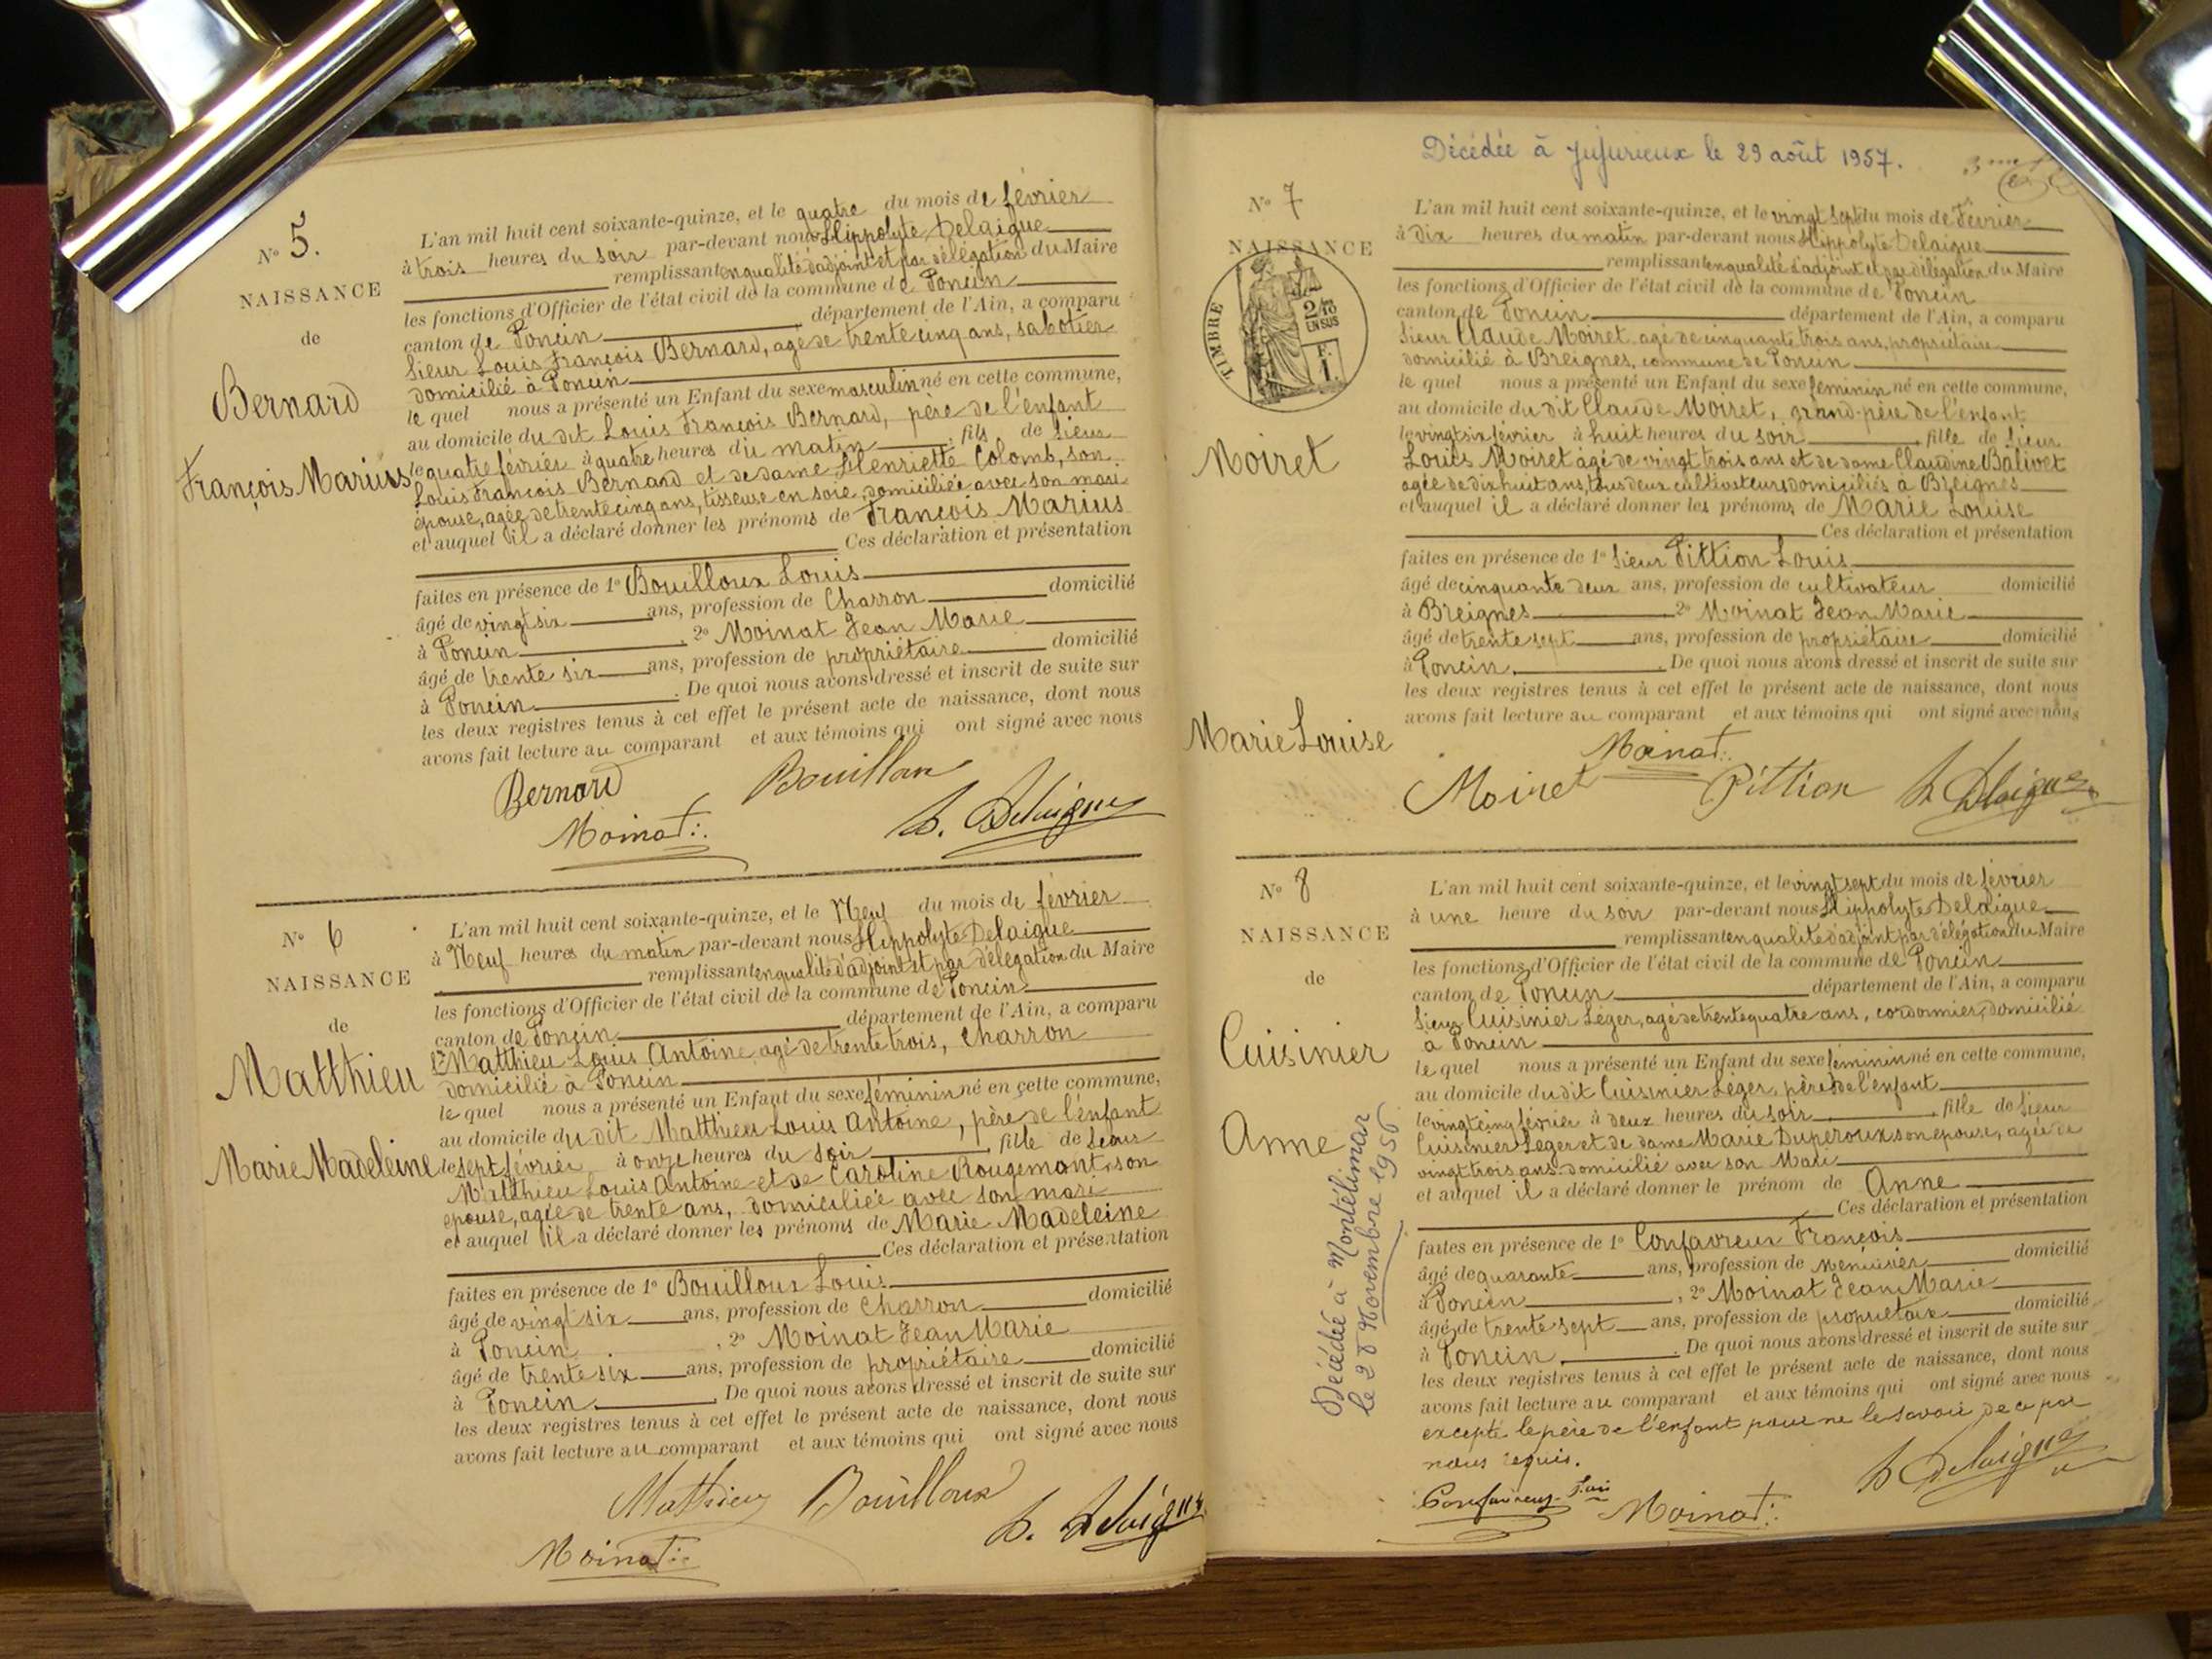 N° 5.
NAISSANCE
de
Bernard
François Marius
L'an mil huit cent soixante-quinze, et le quatre du mois de février
à trois heures du soir par-devant nous Hippolyte Delaigue
remplissant en qualité d'adjoint et par délégation du Maire
les fonctions d'Officier de l'état civil de la commune de Poncin
canton de Poncin département de l'Ain, a comparu
Sieur Louis François Bernard, agé de trente cinq ans, sabotier
domicilié à Poncin
le quel nous a présenté un Enfant du sexe masculin né en cette commune,
au domicile du dit Louis François Bernard, père de l'enfant
le quatre février à quatre heures du matin fils de Sieur
Louis François Bernard et de dame Henriette Colomb, son
épouse, agée de trente cinq ans, tisseuse en soie, domiciliée avec son mari
et auquel il a déclaré donner les prénoms de François Marius
Ces déclaration et présentation
faites en présence de 1° Bouilloux Louis
âgé de vingt six ans, profession de Charron domicilié
à Poncin, 2° Moinat Jean Marie
âgé de trente six ans, profession de propriétaire domicilié
à Poncin. De quoi nous avons dressé et inscrit de suite sur
les deux registres tenus à cet effet le présent acte de naissance, dont nous
avons fait lecture au comparant et aux témoins qui ont signé avec nous
Bernard Bouilloux
Moinat H. Delaigue
N° 6
NAISSANCE
de
Matthieu
Marie Madeleine
L'an mil huit cent soixante-quinze, et le Neuf du mois de février
à Neuf heures du matin par-devant nous Hippolyte Delaigue
remplissant en qualité d'adjoint et par délégation du Maire
les fonctions d'Officier de l'état civil de la commune de Poncin
canton de Poncin département de l'Ain, a comparu
Matthieu Louis Antoine agé de trente trois, Charron
domicilié à Poncin
le quel nous a présenté un Enfant du sexe féminin né en cette commune,
au domicile du dit Matthieu Louis Antoine, père de l'enfant
le sept février à onze heures du soir, fille de Sieur
Matthieu Louis Antoine et de Caroline Rougemont, son
epouse, agée de trente ans, domiciliée avec son mari
et auquel il a déclaré donner les prénoms de Marie Madeleine
Ces déclaration et présentation
faites en présence de 1° Bouilloux Louis
âgé de vingt six ans, profession de Charron domicilié
à Poncin, 2° Moinat Jean Marie
âgé de trente six ans, profession de propriétaire domicilié
à Poncin. De quoi nous avons dressé et inscrit de suite sur
les deux registres tenus à cet effet le présent acte de naissance, dont nous
avons fait lecture au comparant et aux témoins qui ont signé avec nous
Mathieu Bouilloux
Moinat H. Delaigue
Décédée à Jujurieux le 29 août 1957.
N° 7
NAISSANCE
TIMBRE
2/10
EN SUS
F.
1.
Moiret
Marie Louise
L'an mil huit cent soixante-quinze, et le vingt sept du mois de Février
à dix heures du matin par-devant nous Hippolyte Delaigue
remplissant en qualité d'adjoint et par délégation du Maire
les fonctions d'Officier de l'état civil de la commune de Poncin
canton de Poncin département de l'Ain, a comparu
Sieur Claude Moiret agé de cinquante trois ans, propriétaire
domicilié à Breignes, commune de Poncin
le quel nous a présenté un Enfant du sexe féminin né en cette commune,
au domicile du dit Claude Moiret, grand-père de l'enfant
le vingt six février à huit heures du soir, fille de Sieur
Louis Moiret agé de vingt trois ans et de dame Claudine Balivet
agée de dix huit ans, tous deux cultivateurs domiciliés à Breignes
et auquel il a déclaré donner les prénoms de Marie Louise
Ces déclaration et présentation
faites en présence de 1° Sieur Pittion Louis
âgé de cinquante deux ans, profession de cultivateur domicilié
à Breignes 2° Moinat Jean Marie
âgé de trente sept ans, profession de propriétaire domicilié
à Poncin. De quoi nous avons dressé et inscrit de suite sur
les deux registres tenus à cet effet le présent acte de naissance, dont nous
avons fait lecture au comparant et aux témoins qui ont signé avec nous
Moinat
Moiret Pittion H Delaigue
N° 8
NAISSANCE
de
Cuisinier
Anne
Décédée à Montélimar
le 28 Novembre 1956
L'an mil huit cent soixante-quinze, et le vingt sept du mois de février
à une heure du soir par-devant nous Hippolyte Delaigue
remplissant en qualité d'adjoint par délégation du Maire
les fonctions d'Officier de l'état civil de la commune de Poncin
canton de Poncin département de l'Ain, a comparu
Sieur Cuisinier Léger, agé de trente quatre ans, cordonnier, domicilié
à Poncin
le quel nous a présenté un Enfant du sexe féminin né en cette commune,
au domicile du dit Cuisinier Léger, père de l'enfant
le vingt cinq février à deux heures du soir, fille de Sieur
Cuisinier Léger et de dame Marie Duperoux son épouse, agée de
vingt trois ans domicilié avec son Mari
et auquel il a déclaré donner le prénom de Anne
Ces déclaration et présentation
faites en présence de 1° Confavreux François
âgé de quarante ans, profession de menuisier domicilié
à Poncin, 2° Moinat Jean Marie
âgé de trente sept ans, profession de propriétaire domicilié
à Poncin. De quoi nous avons dressé et inscrit de suite sur
les deux registres tenus à cet effet le présent acte de naissance, dont nous
avons fait lecture au comparant et aux témoins qui ont signé avec nous
excepté le père de l'enfant pour ne le savoir de ce par
nous requis.
H Delaigue
Confavreux Moinat